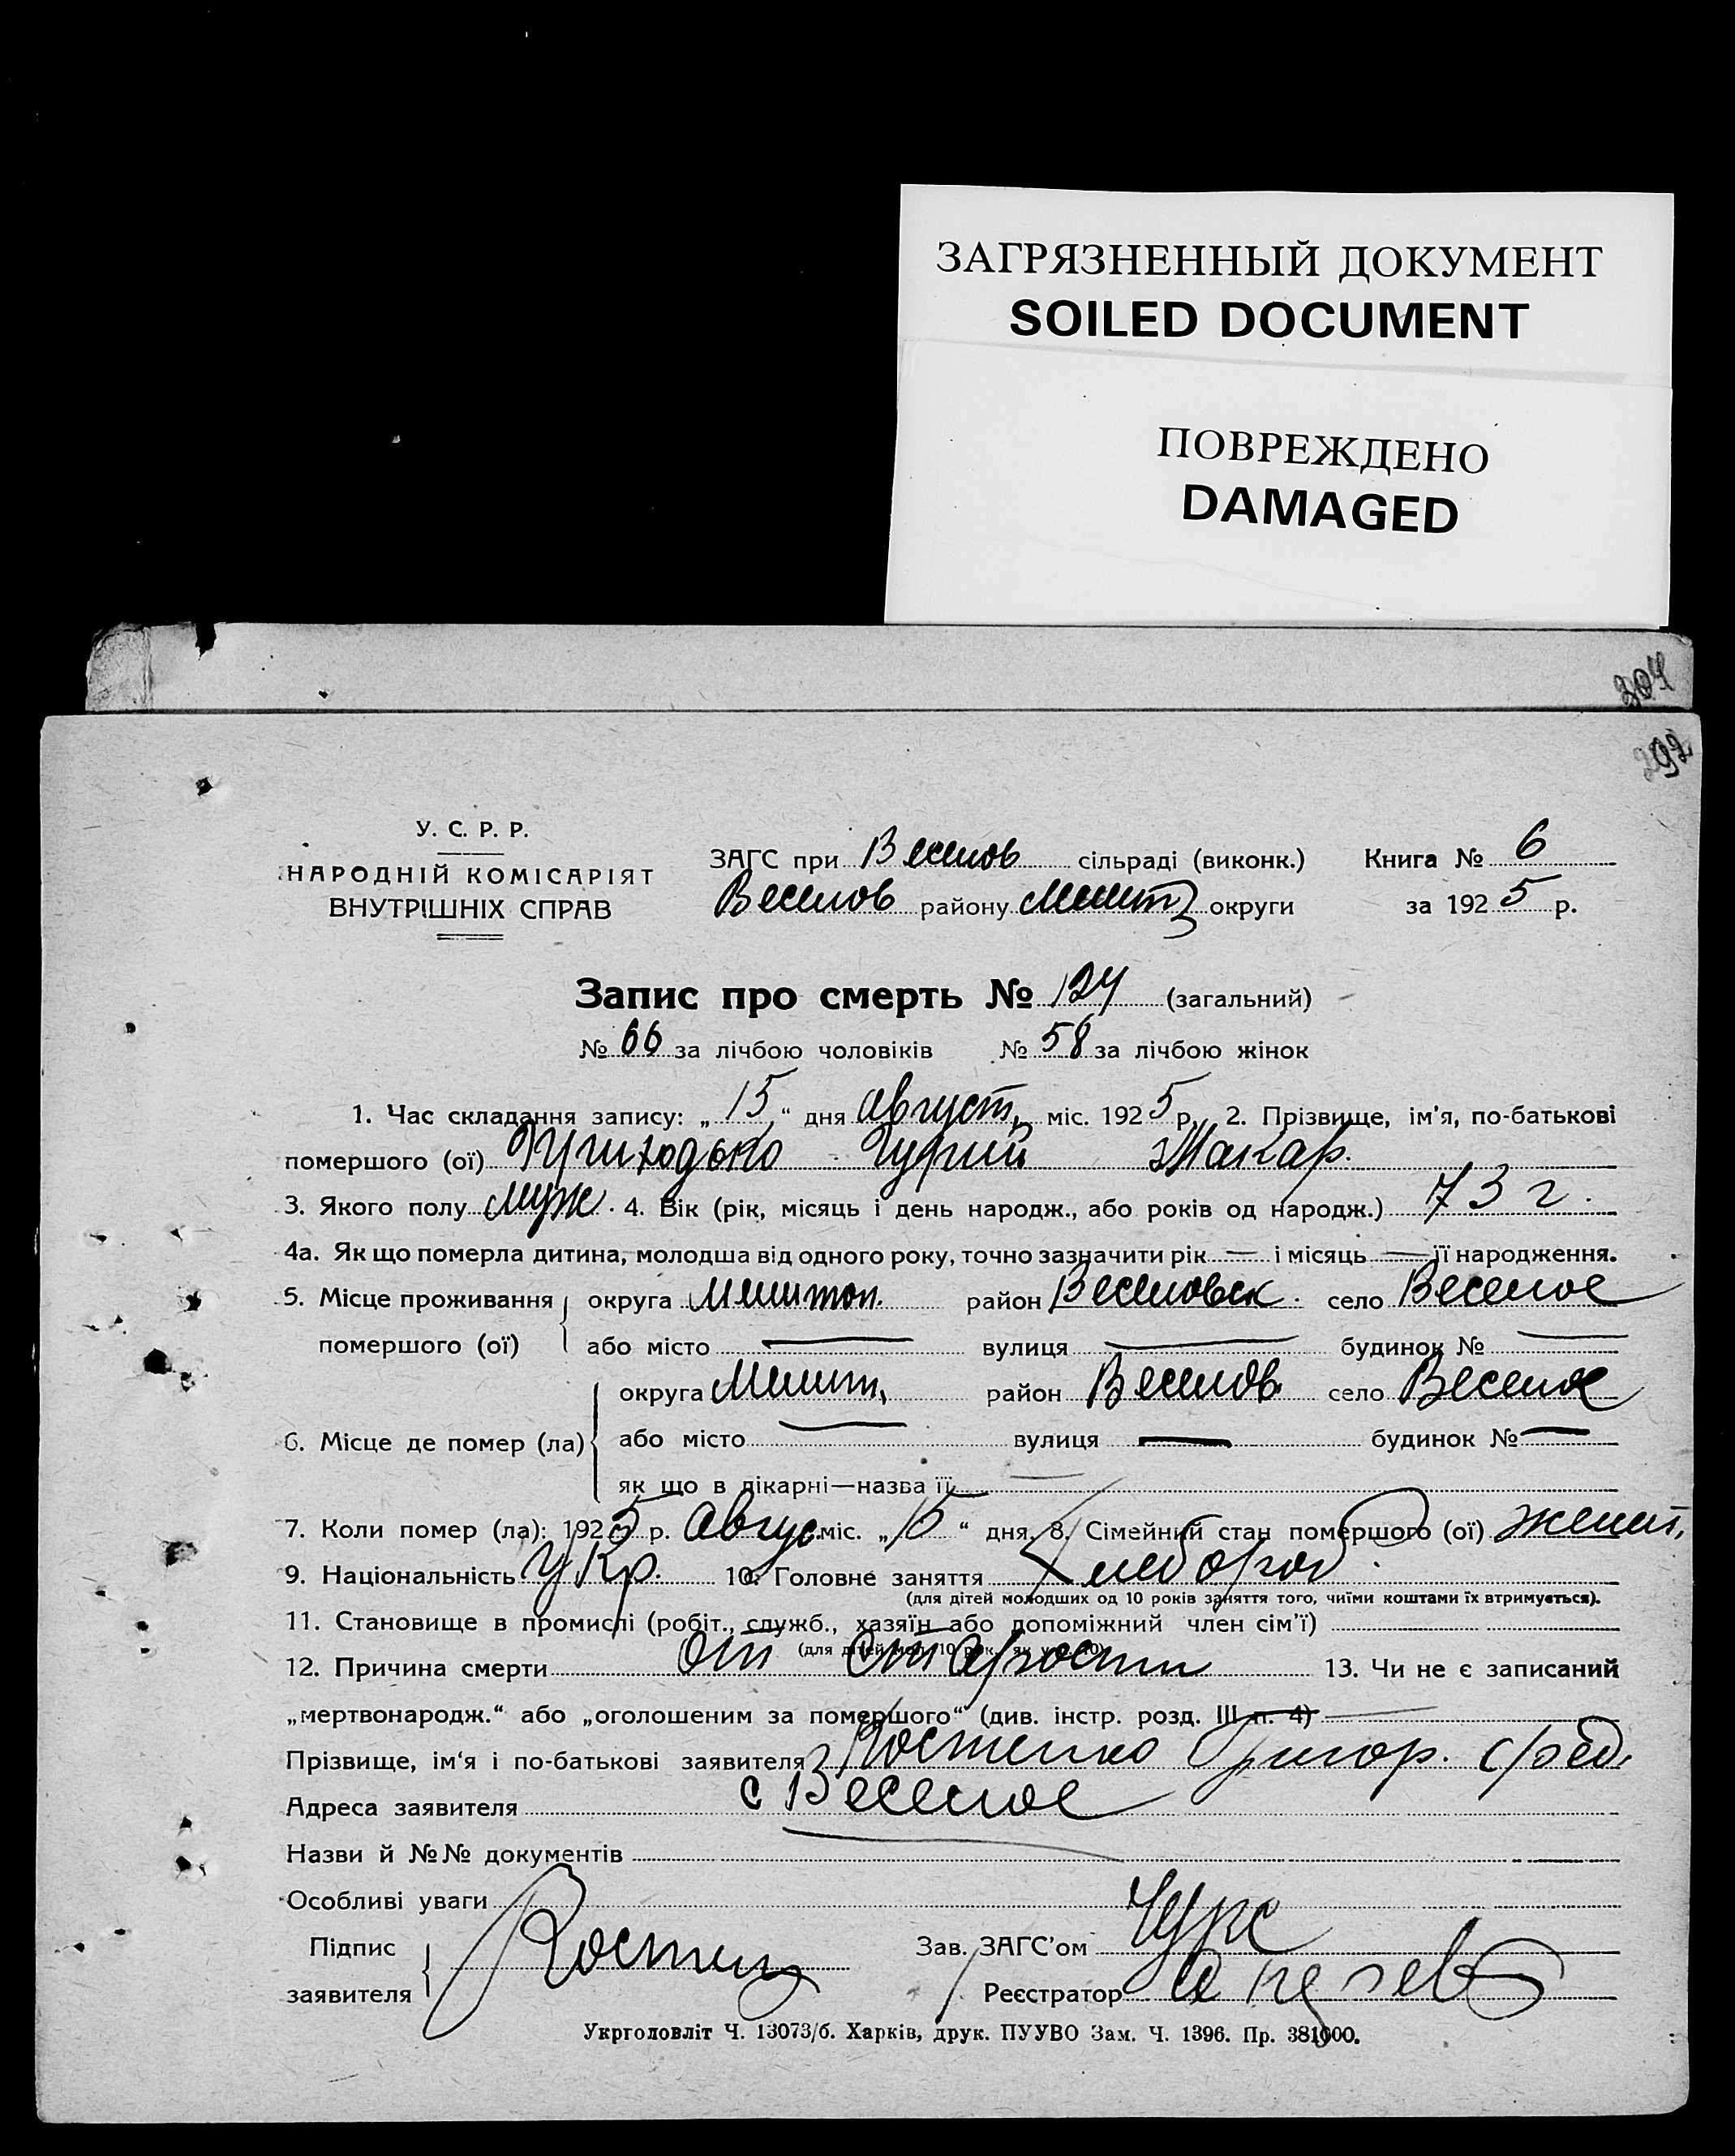 ЗАГРЯЗНЕННЫЙ ДОКУМЕНТ
SOILED DOCUMENT
ПОВРЕЖДЕНО
DAMAGED
204
292
У. С. Р. Р.
НАРОДНІЙ КОМІСАРІЯТ
ВНУТРІШНІХ СПРАВ
ЗАГС при Веселов сільраді (виконк.) Книга № 6
Веселов району Мелит округи за 1925 р.
Запис про смерть № 124 (загальний)
№ 66 за лічбою чоловіків № 58 за лічбою жінок
1. Час складання запису: „ 15 “ дня Август. міс. 1925 р. 2. Прізвище, ім'я, по-батькові
помершого (ої) Гурий Макар.
3. Якого полу муж. 4. Вік (рік, місяць і день народж., або років од народж.) 73 г.
4а. Як що померла дитина, молодша від одного року, точно зазначити рік — і місяць — її народження.
5. Місце проживання округа Мелитоп. район Веселовск. село Веселое
помершого (ої) або місто — вулиця — будинок № —
округа Мелит. район Веселов. село Веселое
6. Місце де помер (ла) або місто — вулиця — будинок № —
як що в лікарні—назва її —
7. Коли помер (ла): 1925 р. Авгус міс. „ 15 “ дня. 8. Сімейний стан помершого (ої) женат.
9. Національність Укр. 10. Головне заняття Хлебороб.
(для дітей молодших од 10 років заняття того, чиїми коштами їх втримується).
11. Становище в промислі (робіт., служб., хазяїн або допоміжний член сім'ї)
(для дітей мол. 10 рок. як у п. 10)
12. Причина смерти от старости 13. Чи не є записаний
„мертвонародж.“ або „оголошеним за помершого“ (див. інстр. розд. III п. 4) —
Прізвище, ім'я і по-батькові заявителя Костенко Григор.
Адреса заявителя с Веселое
Назви й №№ документів
Особливі уваги
Підпис Зав. ЗАГС'ом
заявителя Реєстратор
Укрголовліт Ч. 13073/б. Харків, друк. ПУУВО Зам. Ч. 1396. Пр. 381000.